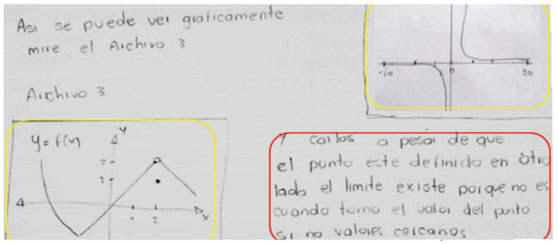 Asi se puede ver graficamente
mire el Archivo 3
Archivo 3
-20
0
20
y=f(x)
y
2
1
1
2
x
Y carlos a pesar de que
el punto este definido en otro
lado el limite existe porque no es
cuando tomo el valor del punto
si no valores cercanos